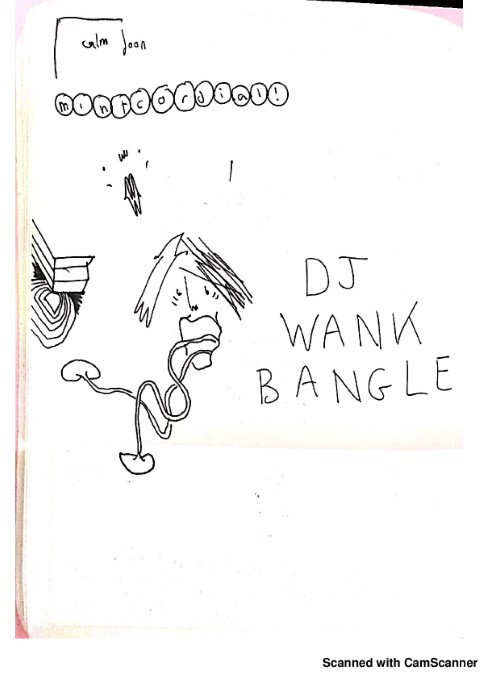 calm Joon
mintcordial!
DJ
WANK
BANGLE
Scanned with CamScanner